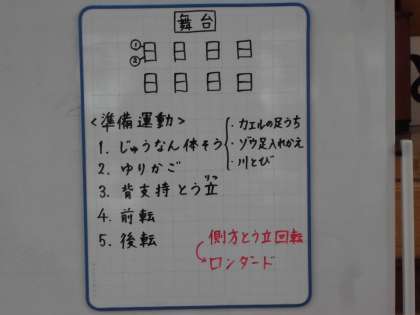 舞台
①
②
<準備運動>
1. じゅうなん体そう
・カエルの足うち
・ゾウ足入れかえ
・川とび
2. ゆりかご
3. 背支持とう立
りつ
4. 前転
5. 後転
側方とう立回転
ロンダード